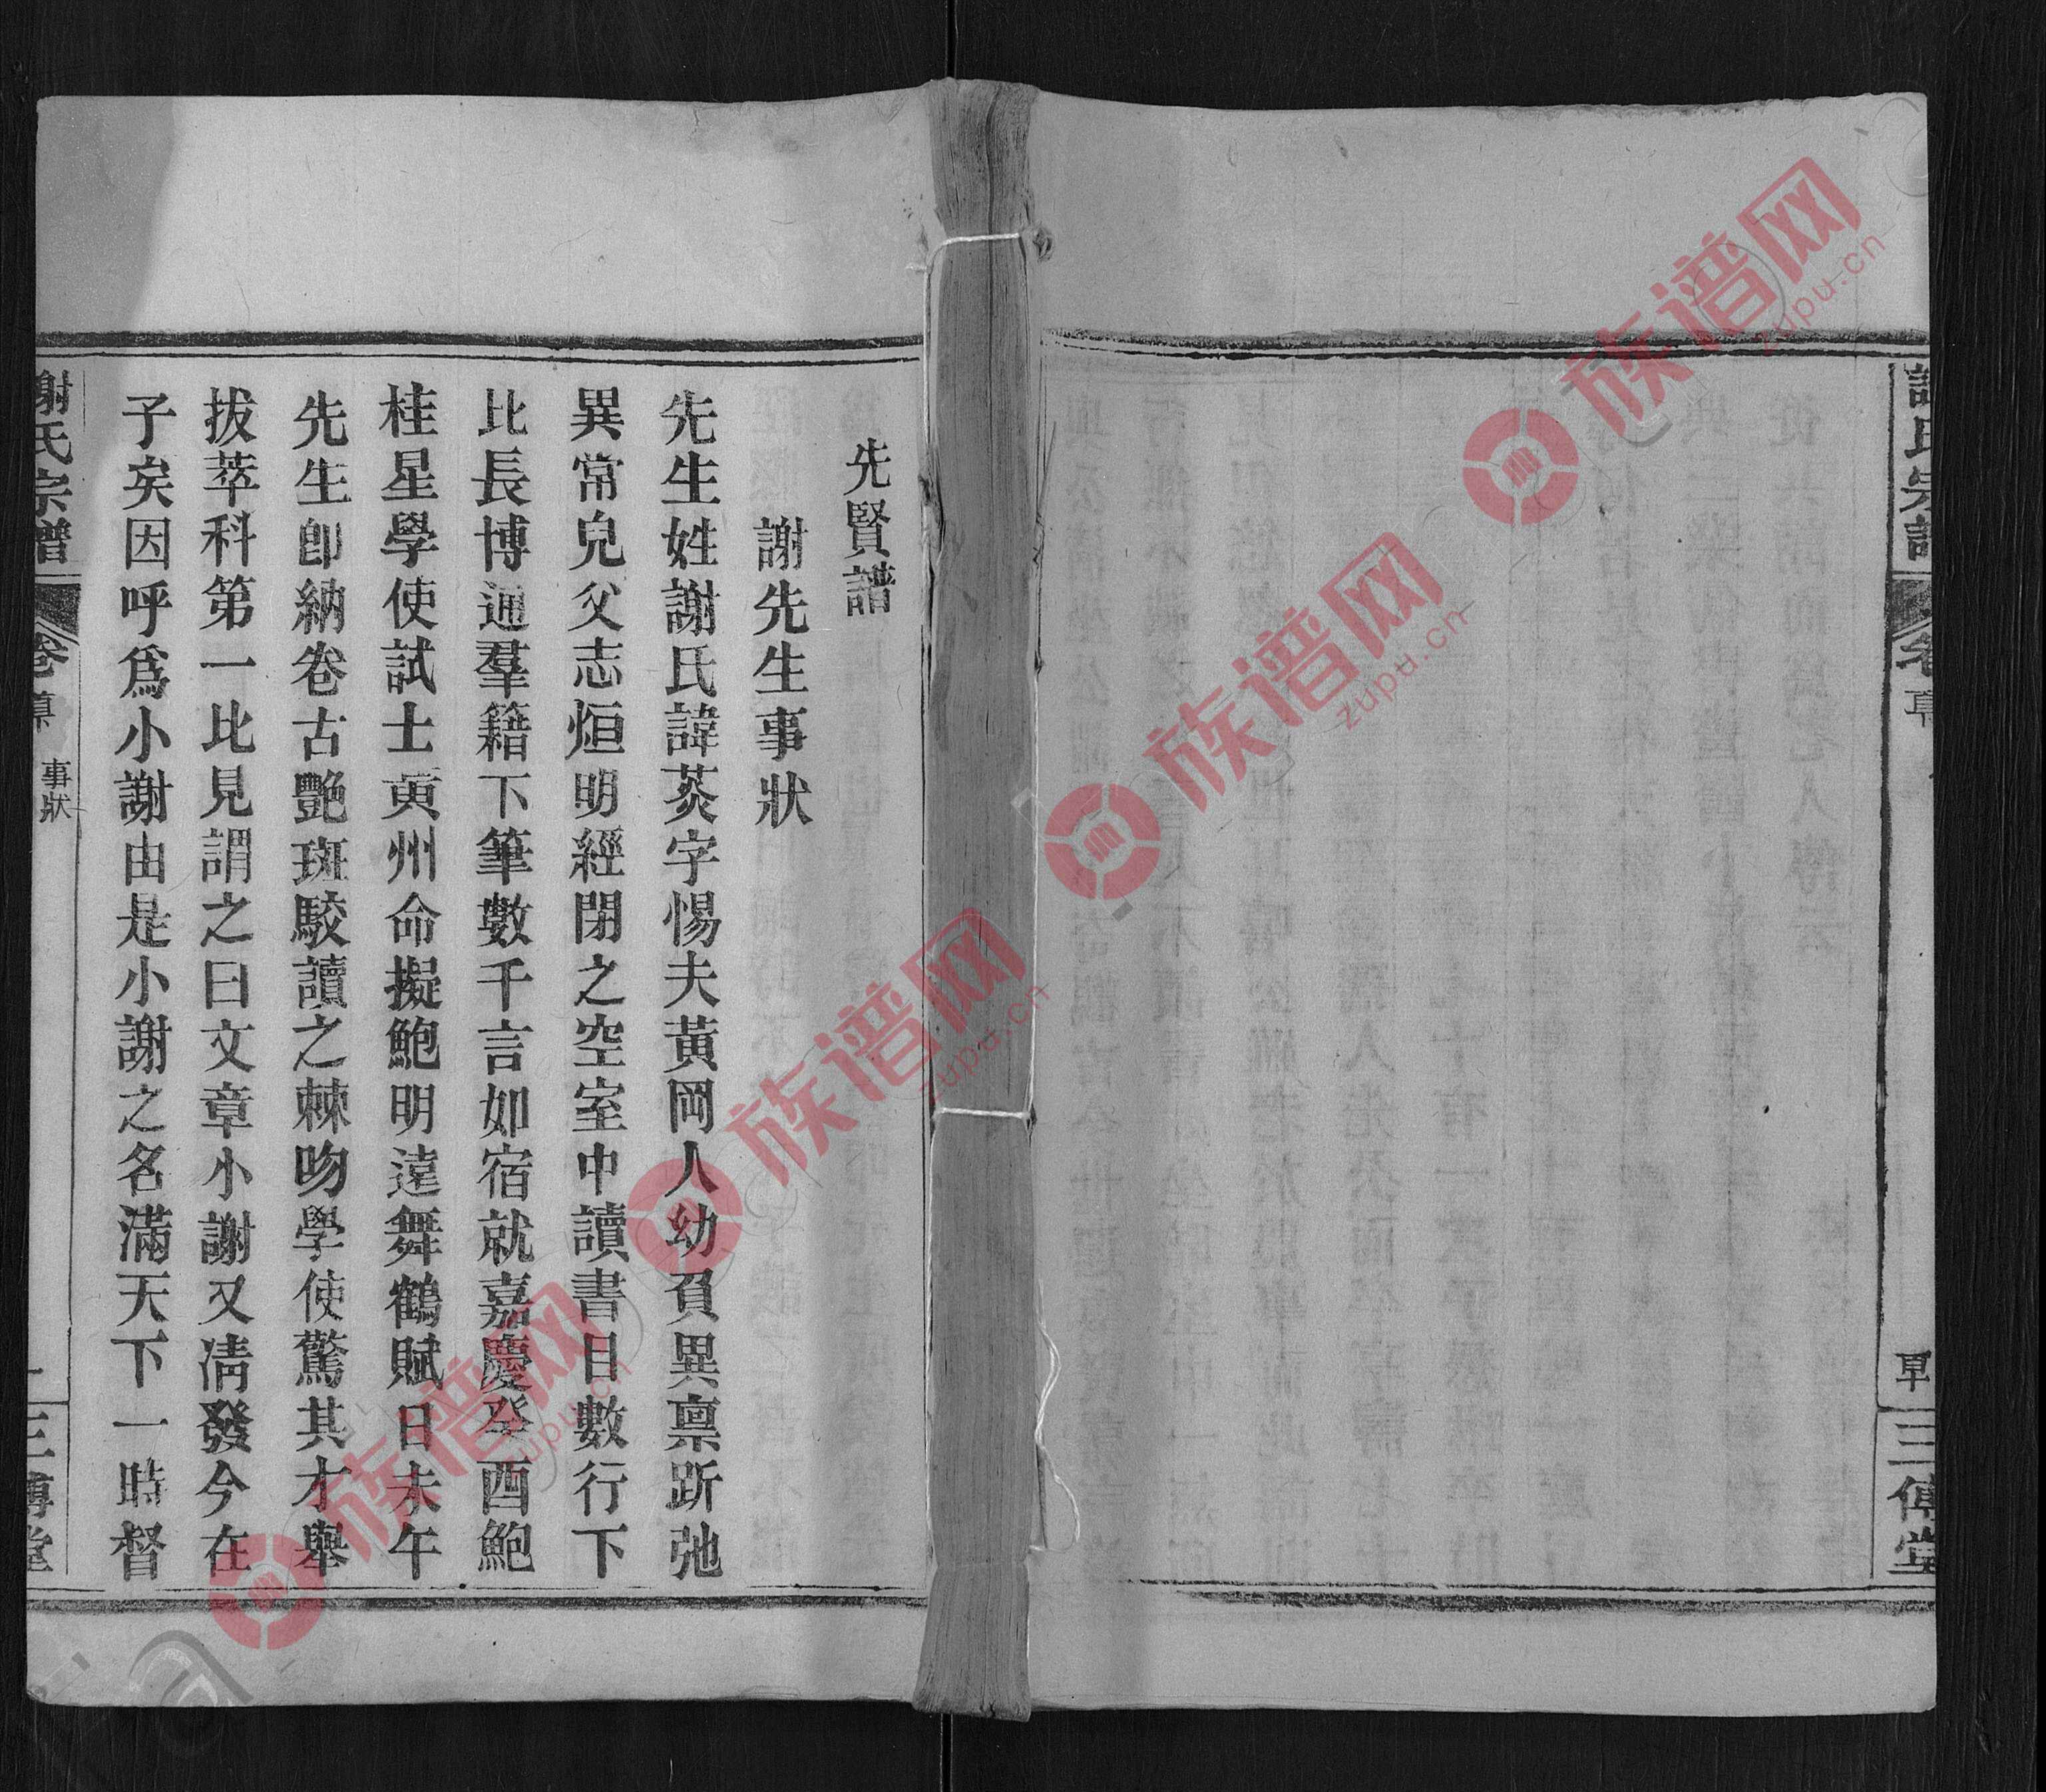 三傳堂
先賢譜
謝先生事狀
先生姓謝氏諱菼字惕夫黃岡人幼負異禀跅弛
異常兒父志烜明經閉之空室中讀書目數行下
比長博通羣籍下筆數千言如宿就嘉慶癸酉鮑
桂星學使試士黃州命擬鮑明遠舞鶴賦日未午
先生卽納卷古艷斑駮讀之棘吻學使驚其才舉
拔萃科第一比見謂之曰文章小謝又淸發今在
子矣因呼爲小謝由是小謝之名滿天下一時督
謝氏宗譜
卷
事狀
三傳堂
族谱网
zupu.cn
族谱网
zupu.cn
族谱网
zupu.cn
族谱网
zupu.cn